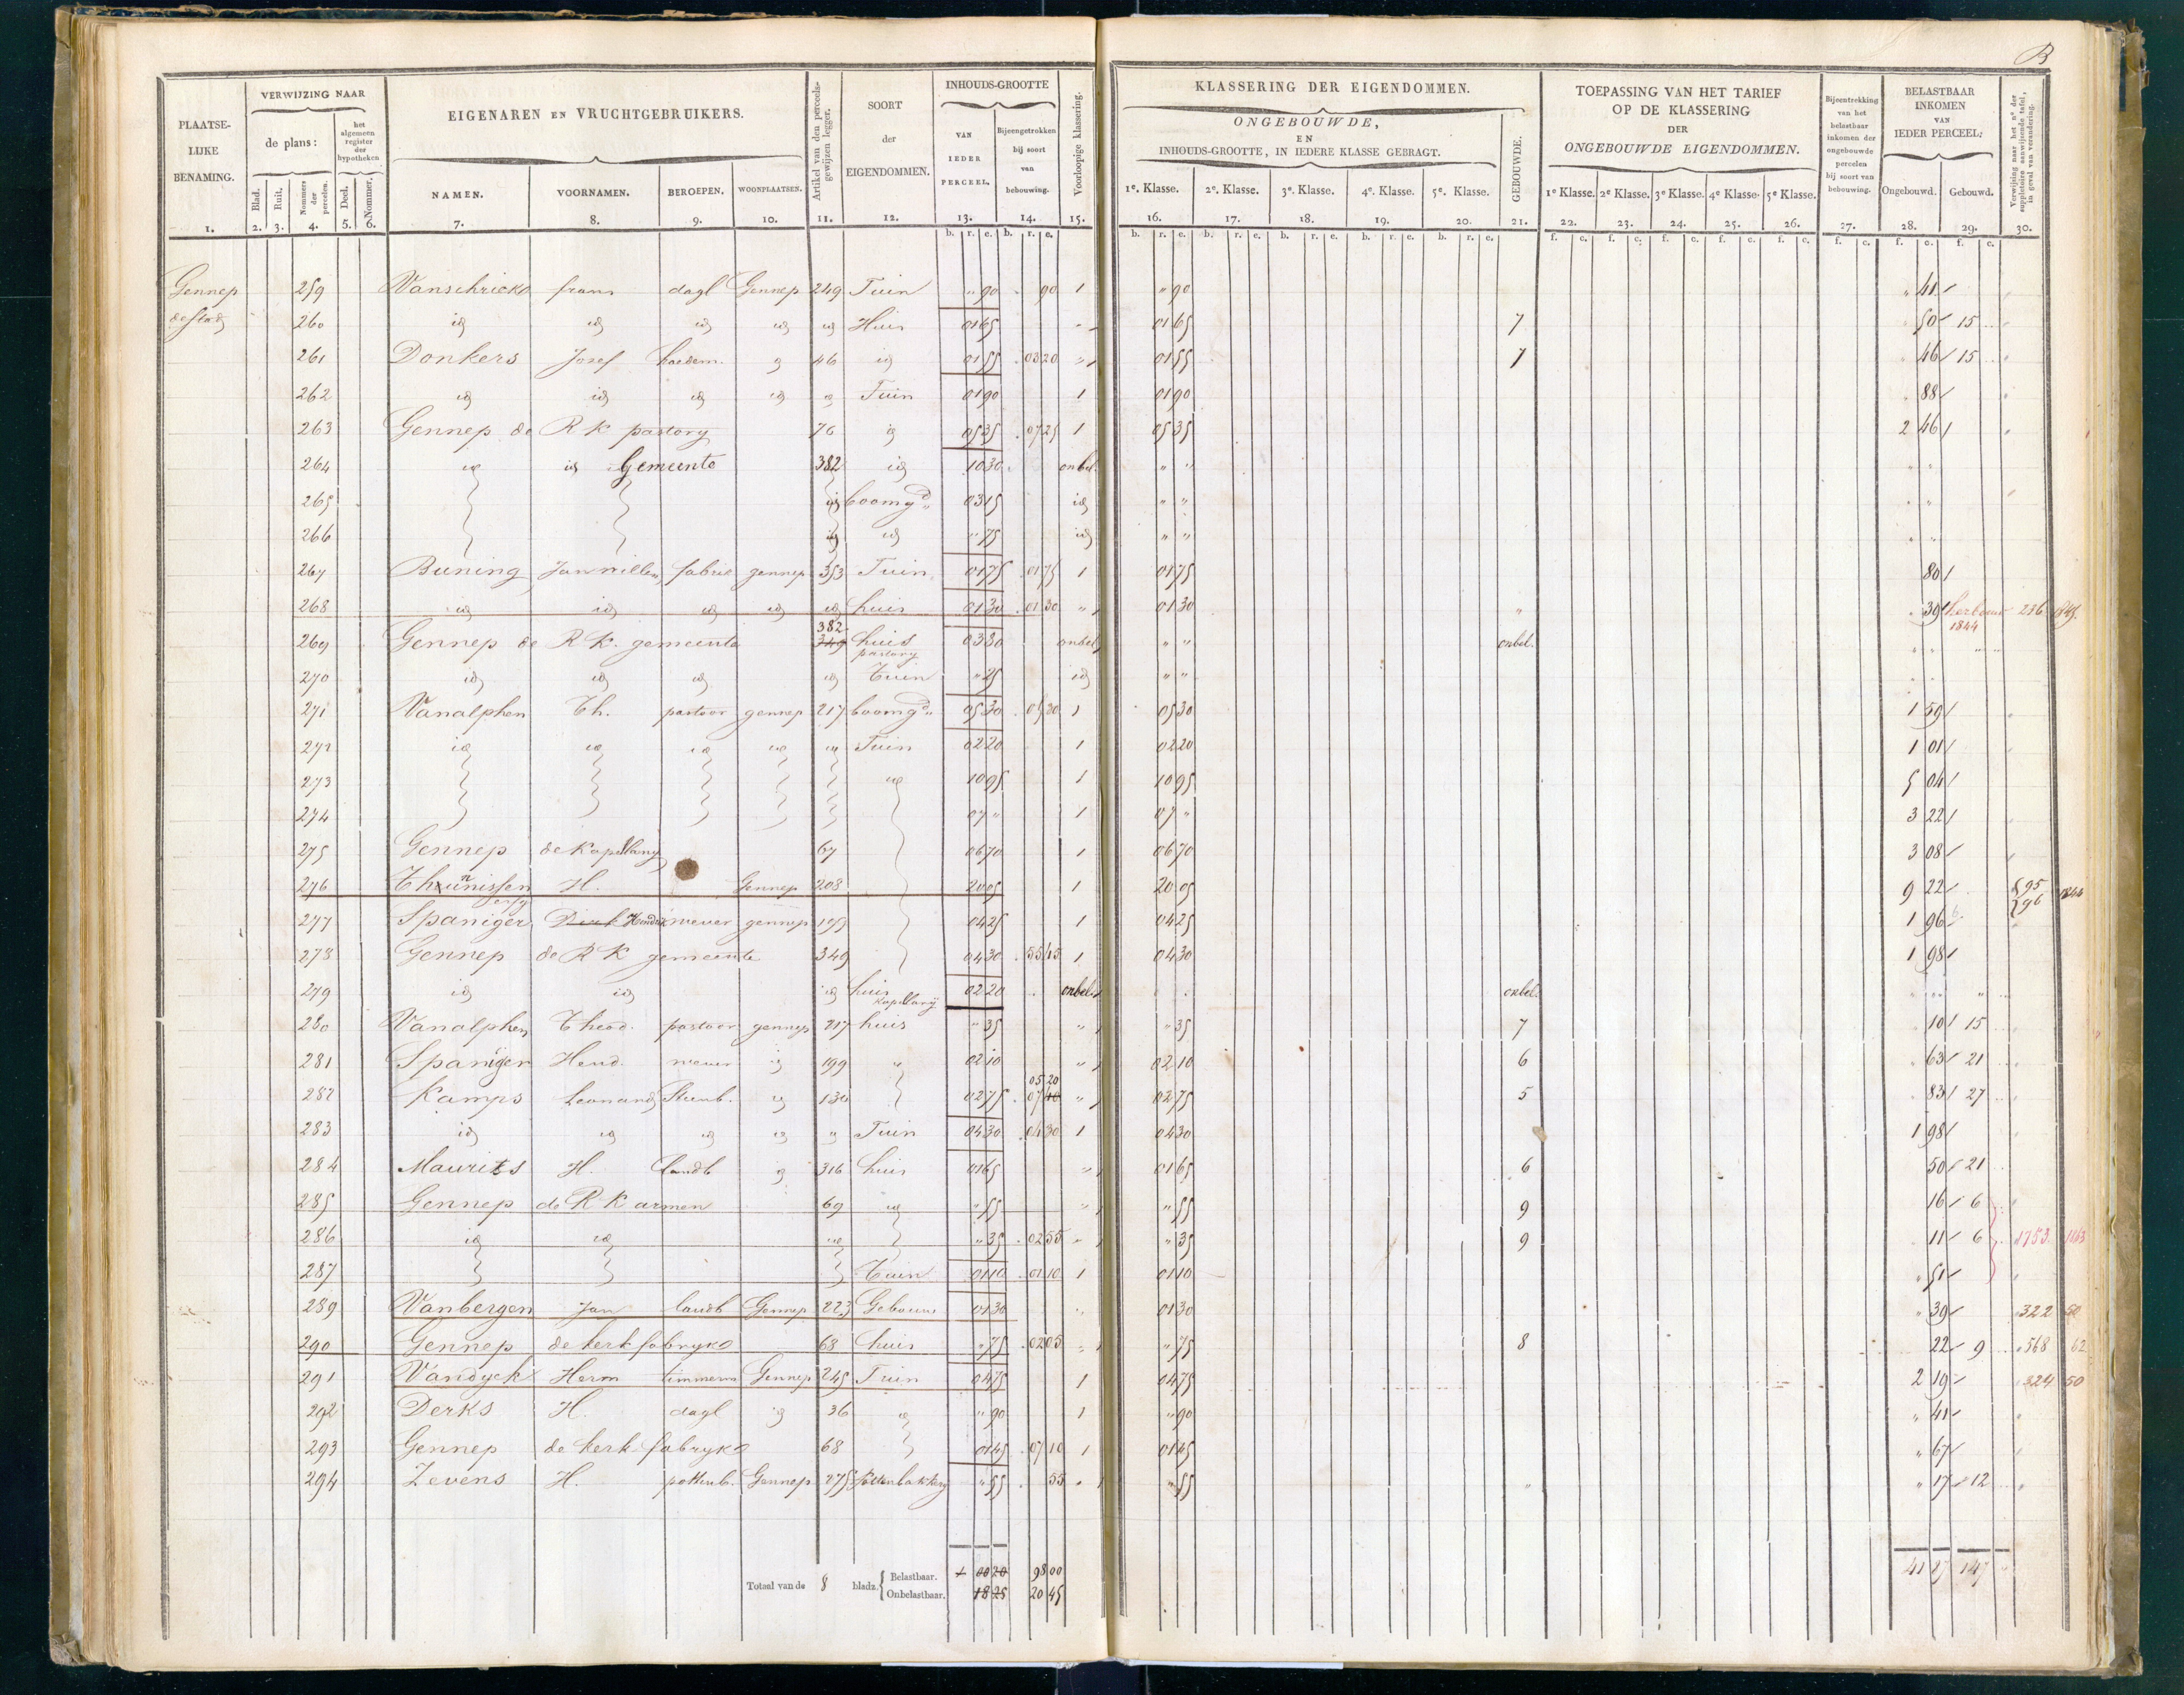 B
PLAATSE-
LIJKE
BENAMING.
VERWIJZING NAAR
de plans:
het
algemeen
register
der
hypotheken
Blad. Ruit. Nommers der percelen. Deel. Nommer.
EIGENAREN EN VRUCHTGEBRUIKERS.
NAMEN. VOORNAMEN. BEROEPEN. WOONPLAATSEN.
Artikel van den perceels-gewijzen legger.
SOORT
der
EIGENDOMMEN.
INHOUDS-GROOTTE
VAN
IEDER
PERCEEL.
Bijeengetrokken
bij soort
van
bebouwing.
Voorloopige klassering.
KLASSERING DER EIGENDOMMEN.
ONGEBOUWDE,
EN
INHOUDS-GROOTTE, IN IEDERE KLASSE GEBRAGT.
1e. Klasse. 2e. Klasse. 3e. Klasse. 4e. Klasse. 5e. Klasse.
GEBOUWDE.
TOEPASSING VAN HET TARIEF
OP DE KLASSERING
DER
ONGEBOUWDE EIGENDOMMEN.
1e Klasse. 2e Klasse. 3e Klasse. 4e Klasse. 5e Klasse.
Bijeentrekking
van het
belastbaar
inkomen der
ongebouwde
percelen
bij soort van
bebouwing.
BELASTBAAR
INKOMEN
VAN
IEDER PERCEEL:
Ongebouwd. Gebouwd.
Verwijzing naar het no der suppletoire aanwijzende tafel, in geval van verandering.
1. 2. 3. 4. 5. 6. 7. 8. 9. 10. 11. 12. 13. 14. 15. 16. 17. 18. 19. 20. 21. 22. 23. 24. 25. 26. 27. 28. 29. 30.
Gennep 259 Vanschricks frans dagl Gennep 249 Tuin " 90 90 1 " 90 " 41
de stad 260 id id id id id Huis 01 65 01 65 7 50 15
261 Donkers Josef hoedem. id 46 id 01 55 03 20 " 01 55 7 46 15
262 id id id id id Tuin 01 90 1 01 90 88
263 Gennep de R K pastory 76 id 05 35 07 25 1 05 35 2 46
264 id id Gemeente 382 id 10 30 onbel. " "
265 id boomgd 03 15 id " "
266 id id " 75 id " "
267 Buning Jan willem fabrik gennep 353 Tuin 01 75 01 75 1 01 75 80
268 id id id id id huis 01 30 01 30 " 01 30 " 39 herbouw 1844 236 1845.
269 Gennep de R K. gemeente 382 349 huis pastory 03 80 onbel. " " onbel.
270 id id id id Tuin " 25 id " "
271 Vanalphen Th. pastoor gennep 217 boomgd 05 30 05 30 1 05 30 1 59
272 id id id id id Tuin 02 20 1 02 20 1 01
273 id 10 95 1 10 95 5 04
274 07 " 1 07 " 3 22
275 Gennep de Kapellany 67 06 70 1 06 70 3 08
276 Theunissen H. Gennep 208 20 05 1 20 05 9 22 95 96 1844
277 Spaniger Dirk Hendrik wever gennep 199 04 25 1 04 25 1 96
278 Gennep de R K gemeente 349 04 30 55 45 1 04 30 1 98
279 id id id huis kapellanij 02 20 onbel. onbel.
280 Vanalphen Theod. pastoor gennep 217 huis " 35 " " 35 7 10 15
281 Spanijer Hend. wever id 199 " 02 10 " 02 10 6 63 21
282 Kamps Leonard Steenb. id 130 02 75 05 20 07 40 " 02 75 5 83 27
283 id id id id " Tuin 04 30 04 30 1 04 30 1 98
284 Maurits H. landb id 316 huis 01 65 " 01 65 6 50 21
285 Gennep de R K armen 69 id " 55 " " 55 9 16 6
286 id id id " 35 02 55 " " 35 9 11 6 1753 1863
287 Tuin 01 10 01 10 1 01 10 51
289 Vanbergen Jan landb Gennep 223 Gebouw 01 30 01 30 " 39 322 50
290 Gennep de kerk fabryke 68 huis " 75 02 05 " " 75 8 22 9 568 62
291 Vandyck Herm timmerm Gennep 245 Tuin 04 75 1 04 75 2 19 324 50
292 Derks H. dagl id 36 id " 90 1 " 90 " 41
293 Gennep de kerk fabryke 68 01 45 07 10 1 01 45 " 67
294 Zevens H. pottenb. Gennep 275 Pottenbakkery " 55 55 " " 55 " " 17 12
Totaal van de 8 bladz. Belastbaar. 1 00 20 98 00
Onbelastbaar. 18 25 20 45
41 27 147